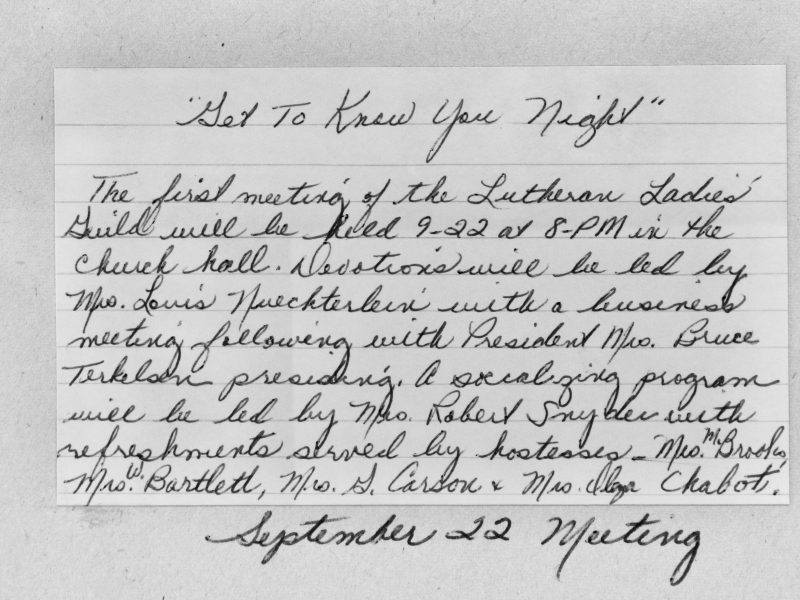 "Get To Know You Night"
The first meeting of the Lutheran Ladies'
Guild will be held 9-22 at 8-PM in the
Church hall. Devotions will be led by
Mrs. Louis Nuechterlein with a business
meeting following with President Mrs. Bruce
Terkelsen presiding. A socializing program
will be led by Mrs. Robert Snyder with
refreshments served by hostesses - Mrs. M. Brooks,
Mrs. W. Bartlett, Mrs. G. Carson & Mrs. Chabot.
September 22 Meeting